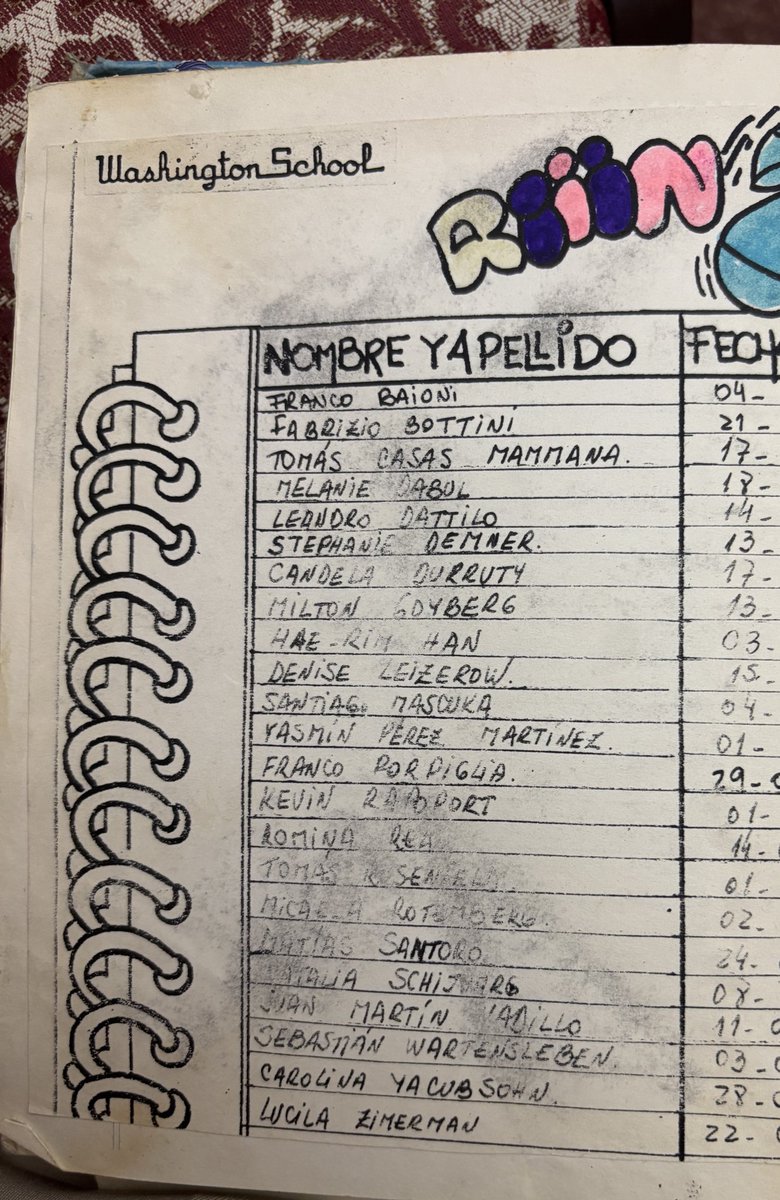 Washington School
Riiin
NOMBRE Y APELLIDO FECH
FRANCO BAIONI 04-
FABRIZIO BOTTINI 21-
TOMÁS CASAS MAMMANA. 17-
MELANIE DABUL 18-
LEANDRO DATTILO 14-
STEPHANIE DEMNER. 13-
CANDELA DURRUTY 17-
MILTON GOYBERG 13-
HAE-RIM HAN 03-
DENISE LEIZEROW. 15-
SANTIAGO 04-
YASMÍN PÉREZ MARTÍNEZ. 01-
FRANCO PORDIGLIA. 29-
KEVIN RAPOPORT 01-
ROMINA 14-
TOMÁS 01-
MICAELA ROTEMBERG 02-
MATÍAS SANTORO 24-
NATALIA 08-
JUAN MARTÍN 11-
SEBASTIÁN WARTENSLEBEN. 03-
CAROLINA YACUBSOHN. 28-
LUCILA ZIMERMAN 22-